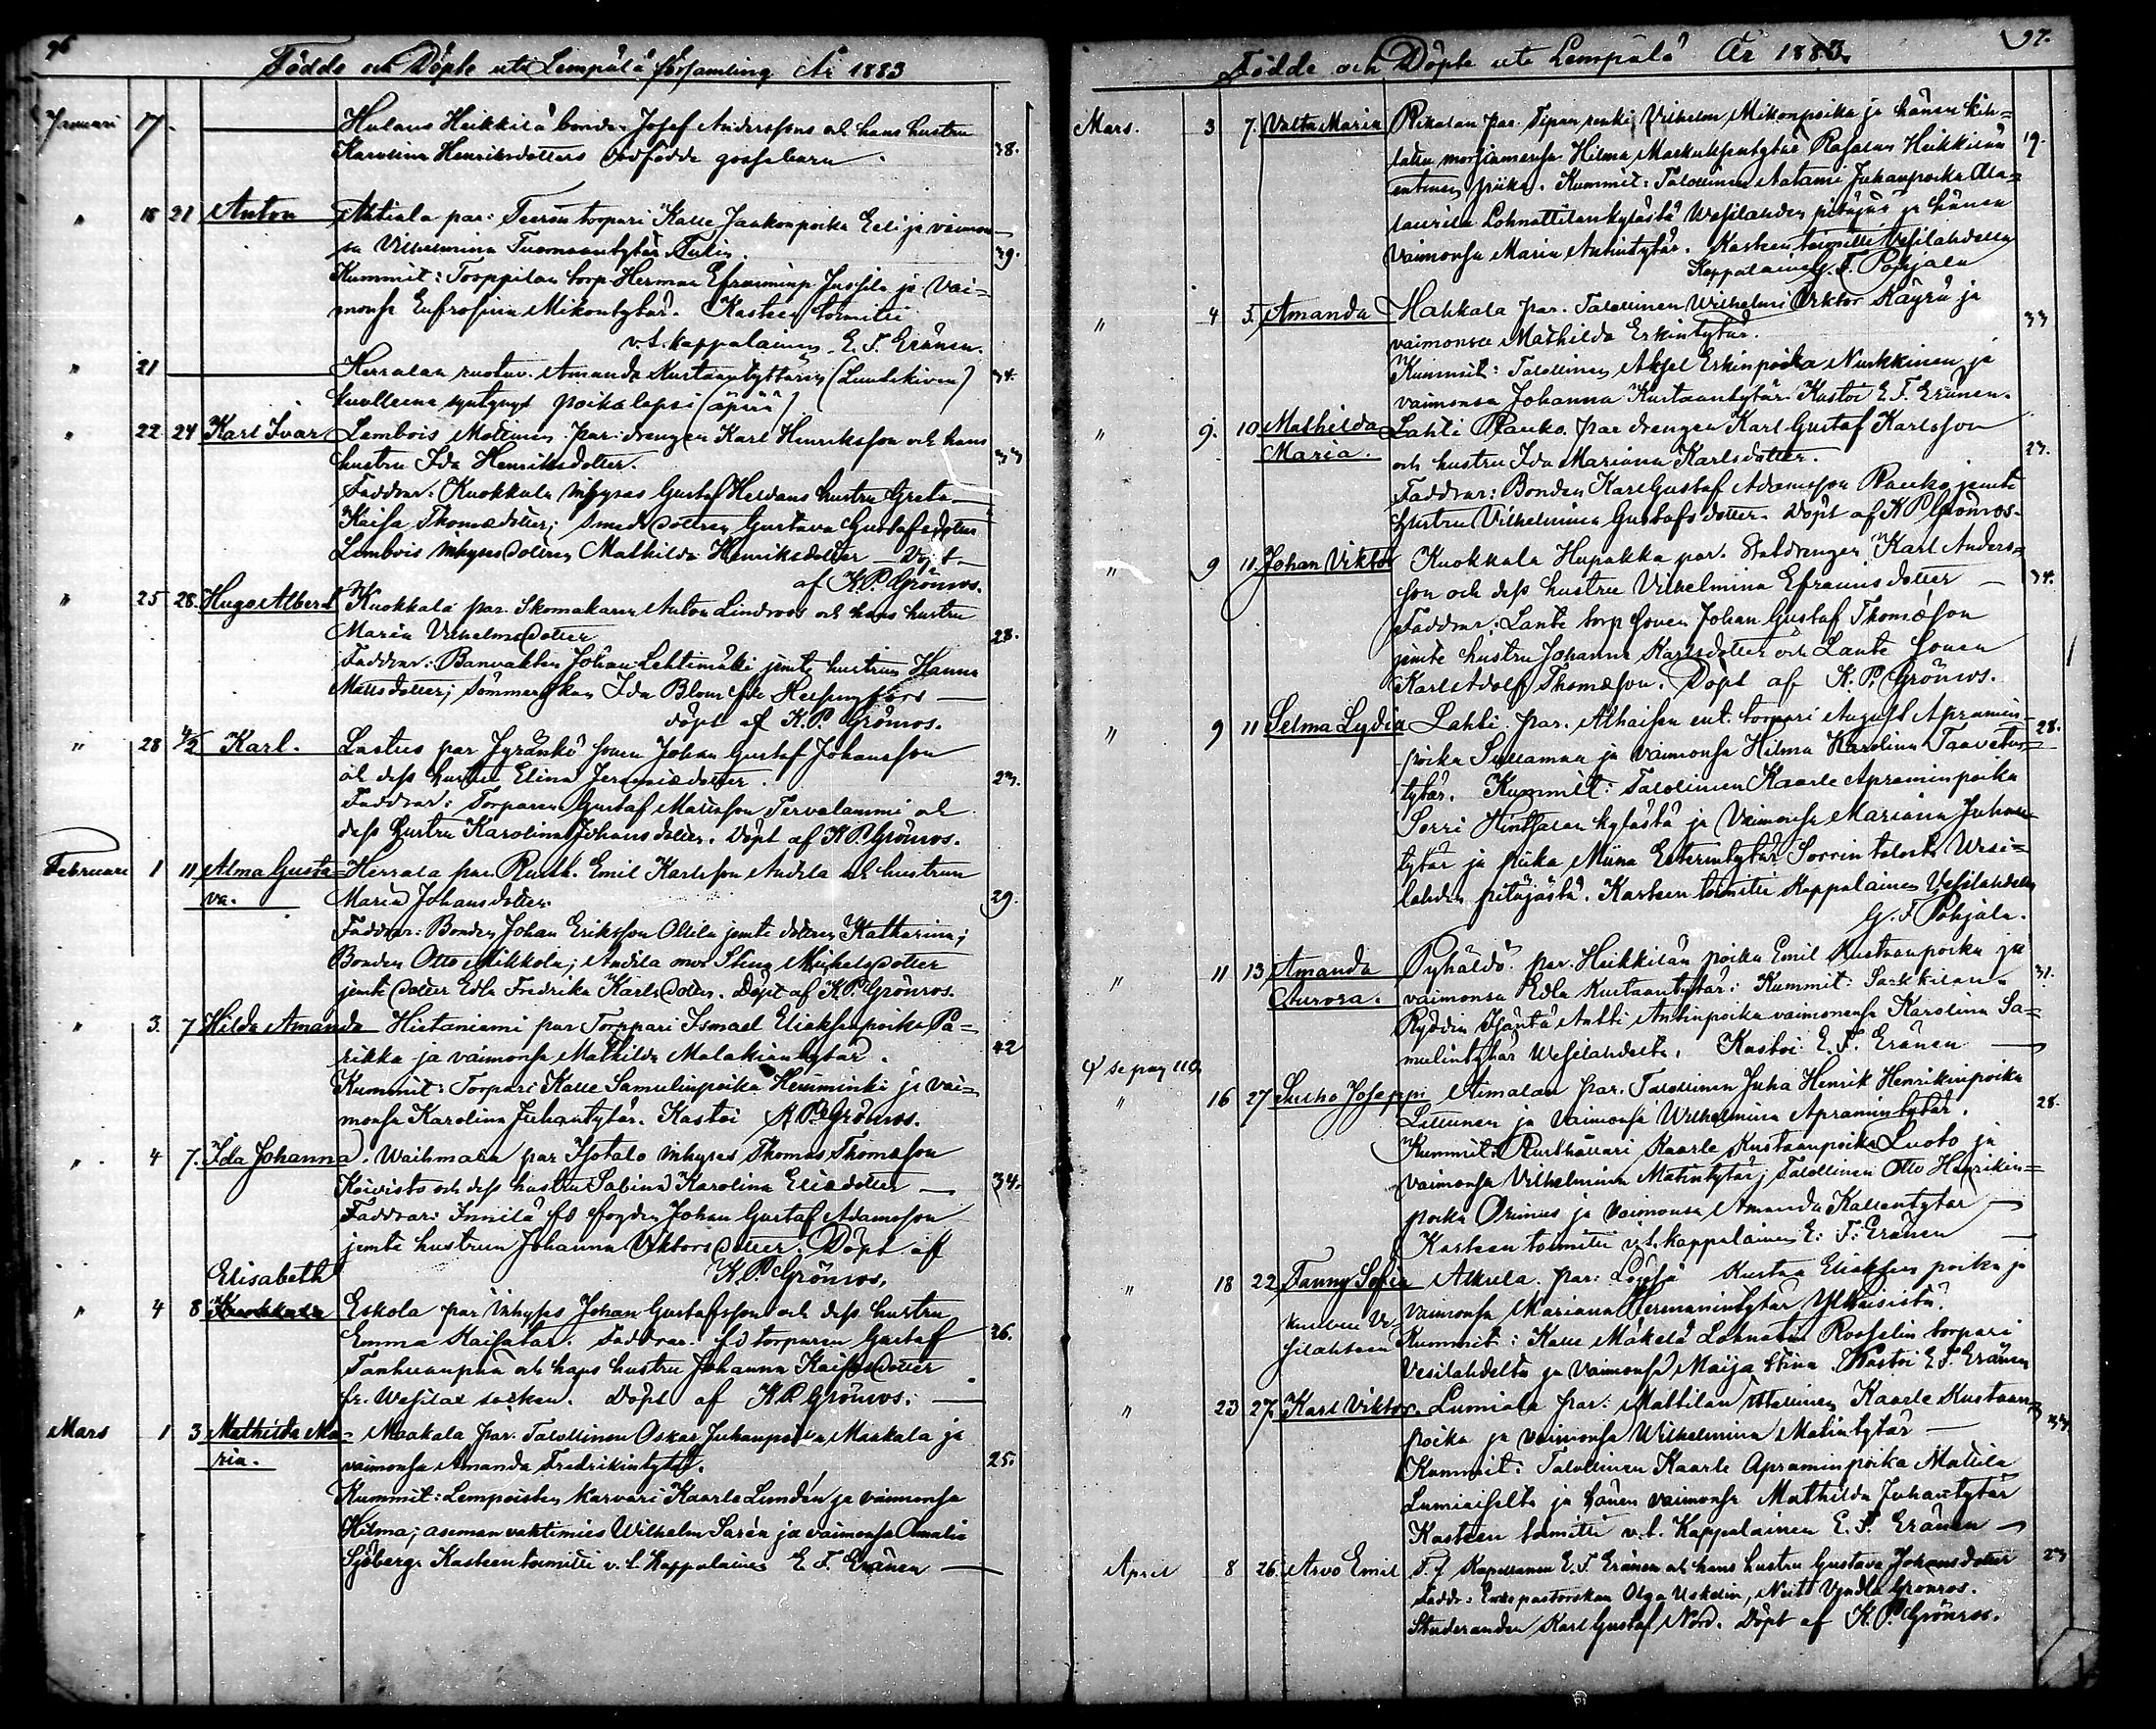 96
Födde och Döpte uti Lempälä församling År 1883
Januari 17. Hulaus Heikkilä bonde Josef Anderssons och hans hustru
Karolina Henriksdotters dödfödde gossebarn. 38.
" 18 21 Anton Ahtiala par: torpari Kalle Jaakonpoika Eeli ja vaimon-
sa Vilhelmina Tuomaantytär Tulin. 39.
Kummit: Torppilan torp. Herman Efraiminp. Jussila ja vai=
monsa Eufrosina Mikontytär. Kasteen toimitti
v.t. kappalainen E. F. Eränen.
" 21 Herralan ruotuv. Amanda Kustaantyttären (Lundskiven) 34.
kuolleena syntynyt poikalapsi (äpärä)
" 22 24 Karl Ivar Lembois Mottinen par: drengen Karl Henriksson och hans
hustru Ida Henriksdotter. 33
Faddrar: Kuokkala inhyses Gustaf Heldans hustru Greta
Kaisa Thomædotter; Smeds dottren Gustava Gustafsdotter
Lembois inhyses dottren Mathilda Henriksdotter — Döpt
af K.P. Grönros.
" 25 28. Hugo Albert Kuokkala par. Skomakaren Anton Lindroos och hans hustru
Maria Vilhelmsdotter 28.
Faddrar: Banvakten Johan Lehtimäki jemte hustrun Hanna
Mattsdotter; sömmerskan Ida Blom fr. Helsingfors —
döpt af K.P. Grönros.
" 28 4/2 Karl. Lastus par Jyränkö sonen Johan Gustaf Johansson
och dess hustru Elina Jeremiædotter. 23.
Faddrar: Torparen Gustaf Mattsson Tervalammi och
dess hustru Karolina Johansdotter. Döpt af K.P. Grönros.
Februari 1 11 Alma Gusta= Herrala par. Rusth. Emil Karlsson Andila och hustrun
va. Maria Johansdotter. 29.
Faddrar: Bonden Johan Eriksson Ollila jemte dottren Katharina;
Bonden Otto Mikkola; Andila mor Stina Michelsdotter
jemte dotter Edla Fredrika Karlsdotter. Döpt af K.P. Grönros.
" 3. 7 Hilda Amanda Hietaniemi par Torppari Ismael Eliaksenpoika Pä=
rikka ja vaimonsa Mathilda Malakiantytär. 42
Kummit: Torpari Kalle Samulinpoika Hemminki ja vai=
monsa Karolina Juhantytär. Kastoi K.P. Grönros.
" 4 7. Ida Johanna. Waihmala par Isotalo inhyses Thomas Thomasson
Koivisto och dess hustru Sabina Karolina Eliedotter — 34.
Faddrar: Innilä fd fogden Johan Gustaf Adamsson
jemte hustrun Johanna Viktorsdotter. Döpt af
K.P. Grönros.
Elisabeth
" 4 8 Kuokkala Eskola par inhyses Johan Gustafsson och dess hustru
Emma Kaisatar. Faddrar: fd torparen Gustaf 26.
Tanhuanpää och hans hustru Johanna Kaisadotter
fr. Wesilax socken. Döpt af K.P. Grönros. —
Mars 1 3 Mathilda Ma- Maakala par. Talollinen Oskar Juhanpoika Maakala ja
ria. vaimonsa Amanda Fredrikintytär. 25.
Kummit: Lempoisten karvari Kaarle Lundén ja vaimonsa
Hilma; aseman vahtimies Wilhelm Sarén ja vaimonsa Amalia
Sjöberg. Kasteen toimitti v.t. Kappalainen E. F. Eränen —
97.
Födde och Döpte uti Lempälä År 1883.
Mars. 3 7. Maria par. renki Vilhelm Mikonpoika ja hänen kih=
lattu morsiamensa Hilma Markuksentytär Heikkilän 19.
entinen piika. Kummit: Talollinen Aatami Juhanpoika Ala=
laurila Lohnattilankylästä Wesilahden pitäjäs ja hänen
vaimonsa Maria Antintytär. Kasteen toimitti Vesilahdella
Kappalainen G. F. Pohjala
" 4 5. Amanda Hahkala par. Talollinen Wilhelmi Viktor Käyrä ja 33
vaimonsa Mathilda Erkintytär.
Kummit: Talollinen Aksel Erkinpoika Nurkkinen ja
vaimonsa Johanna Kustaantytär. Kastoi E. F. Eränen.
" 9. 10 Mathilda Lahti Pauko par drengen Karl Gustaf Karlsson
Maria. och hustru Ida Mariana Karlsdotter. 23.
Faddrar: Bonden Karl Gustaf Adamsson Pauko jemte
hustru Vilhelmina Gustafsdotter. Döpt af K P Grönros.
" 9 11. Johan Viktor Kuokkala Hupakka par. Statdrengen Karl Anders=
son och dess hustru Vilhelmina Efraimsdotter — 34.
Faddrar: Lante torp sonen Johan Gustaf Thomæson
jemte hustru Johanna Karlsdotter och Lante sonen
Karl Adolf Thomæson. Döpt af K. P. Grönros.
" 9 11 Selma Lydia Lahti par. ent. torpari August Apramin- 28.
poika Sullamaa ja vaimonsa Hilma Karolina Taavetin=
tytär. Kummit: Talollinen Kaarle Apraminpoika
Sorri Hinsalan kylästä ja Vaimonsa Mariana Juhan-
tytär ja piika Miina Esterintytär Sorrin talosta Wesi=
lahden pitäjästä. Kasteen toimitti Kappalainen Vesilahdella
G. F. Pohjala.
" 11 13 Amanda Pyhältö par. Heikkilän poika Emil Kustaanpoika ja
Aurora. vaimonsa Edla Kustaantytär: Kummit: Sarkkilan 31.
Isäntä Antti Antinpoika vaimonensa Karolina Sa=
mulintytär Wesilahdelta. Kastoi E. F. Eränen —
se pag 110
" 16 27 Juho Joseppi Aimalan par. Talollinen Juha Henrik Henrikinpoika
ja vaimonsa Wilhelmina Apramintytär. 28.
Kummit: Rusthållari Kaarle Kustaanpoika Luoto ja
vaimonsa Vilhelmina Matintytär; Talollinen Otto Henrikin=
poika ja vaimonsa Amanda Kallentytär —
Kasteen toimitti v.t. kappalainen E. F. Eränen —
" 18 22 Fanny Sofia Alkula. par: Kustaa Eliaksen poika ja
kuuluu Ve- vaimonsa Mariana Hermanintytär
silahteen Kummit: Kalle Mäkelä torpari
Vesilahdelta ja vaimonsa Maija Stina. Kastoi E. F. Eränen
" 23 27. Karl Viktor. Lumiala par: Mattilan Kaarle Kustaan
poika ja vaimonsa Wilhelmina Matintytär — 33
Kummit: Talollinen Kaarle Apraminpoika Mattila
ja hänen vaimonsa Mathilda Juhantytär
Kasteen toimitti v.t. Kappalainen E. F. Eränen —
April 8 26. Arvo Emil T. f Kapellanen E. F. Eränen och hans hustru Gustava Johansdotter 23
Faddr: Enkepastorskan Olga Uskelin, Grönros.
Studeranden Karl Gustaf Nord. Döpt af K. P. Grönros.